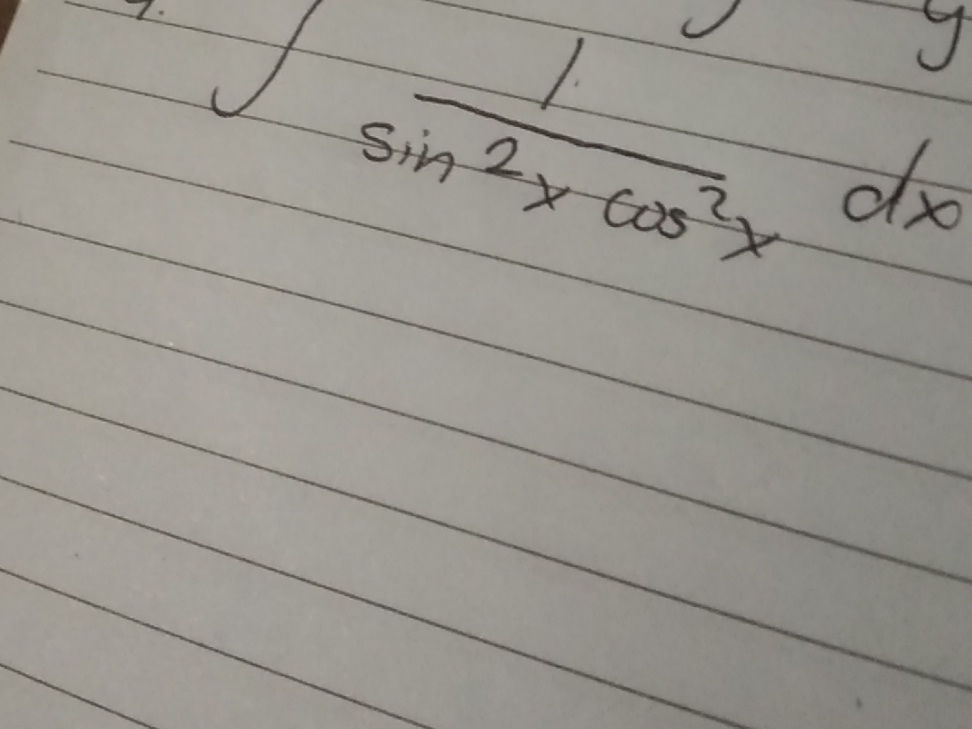 ∫ 1/(sin²x cos²x) dx